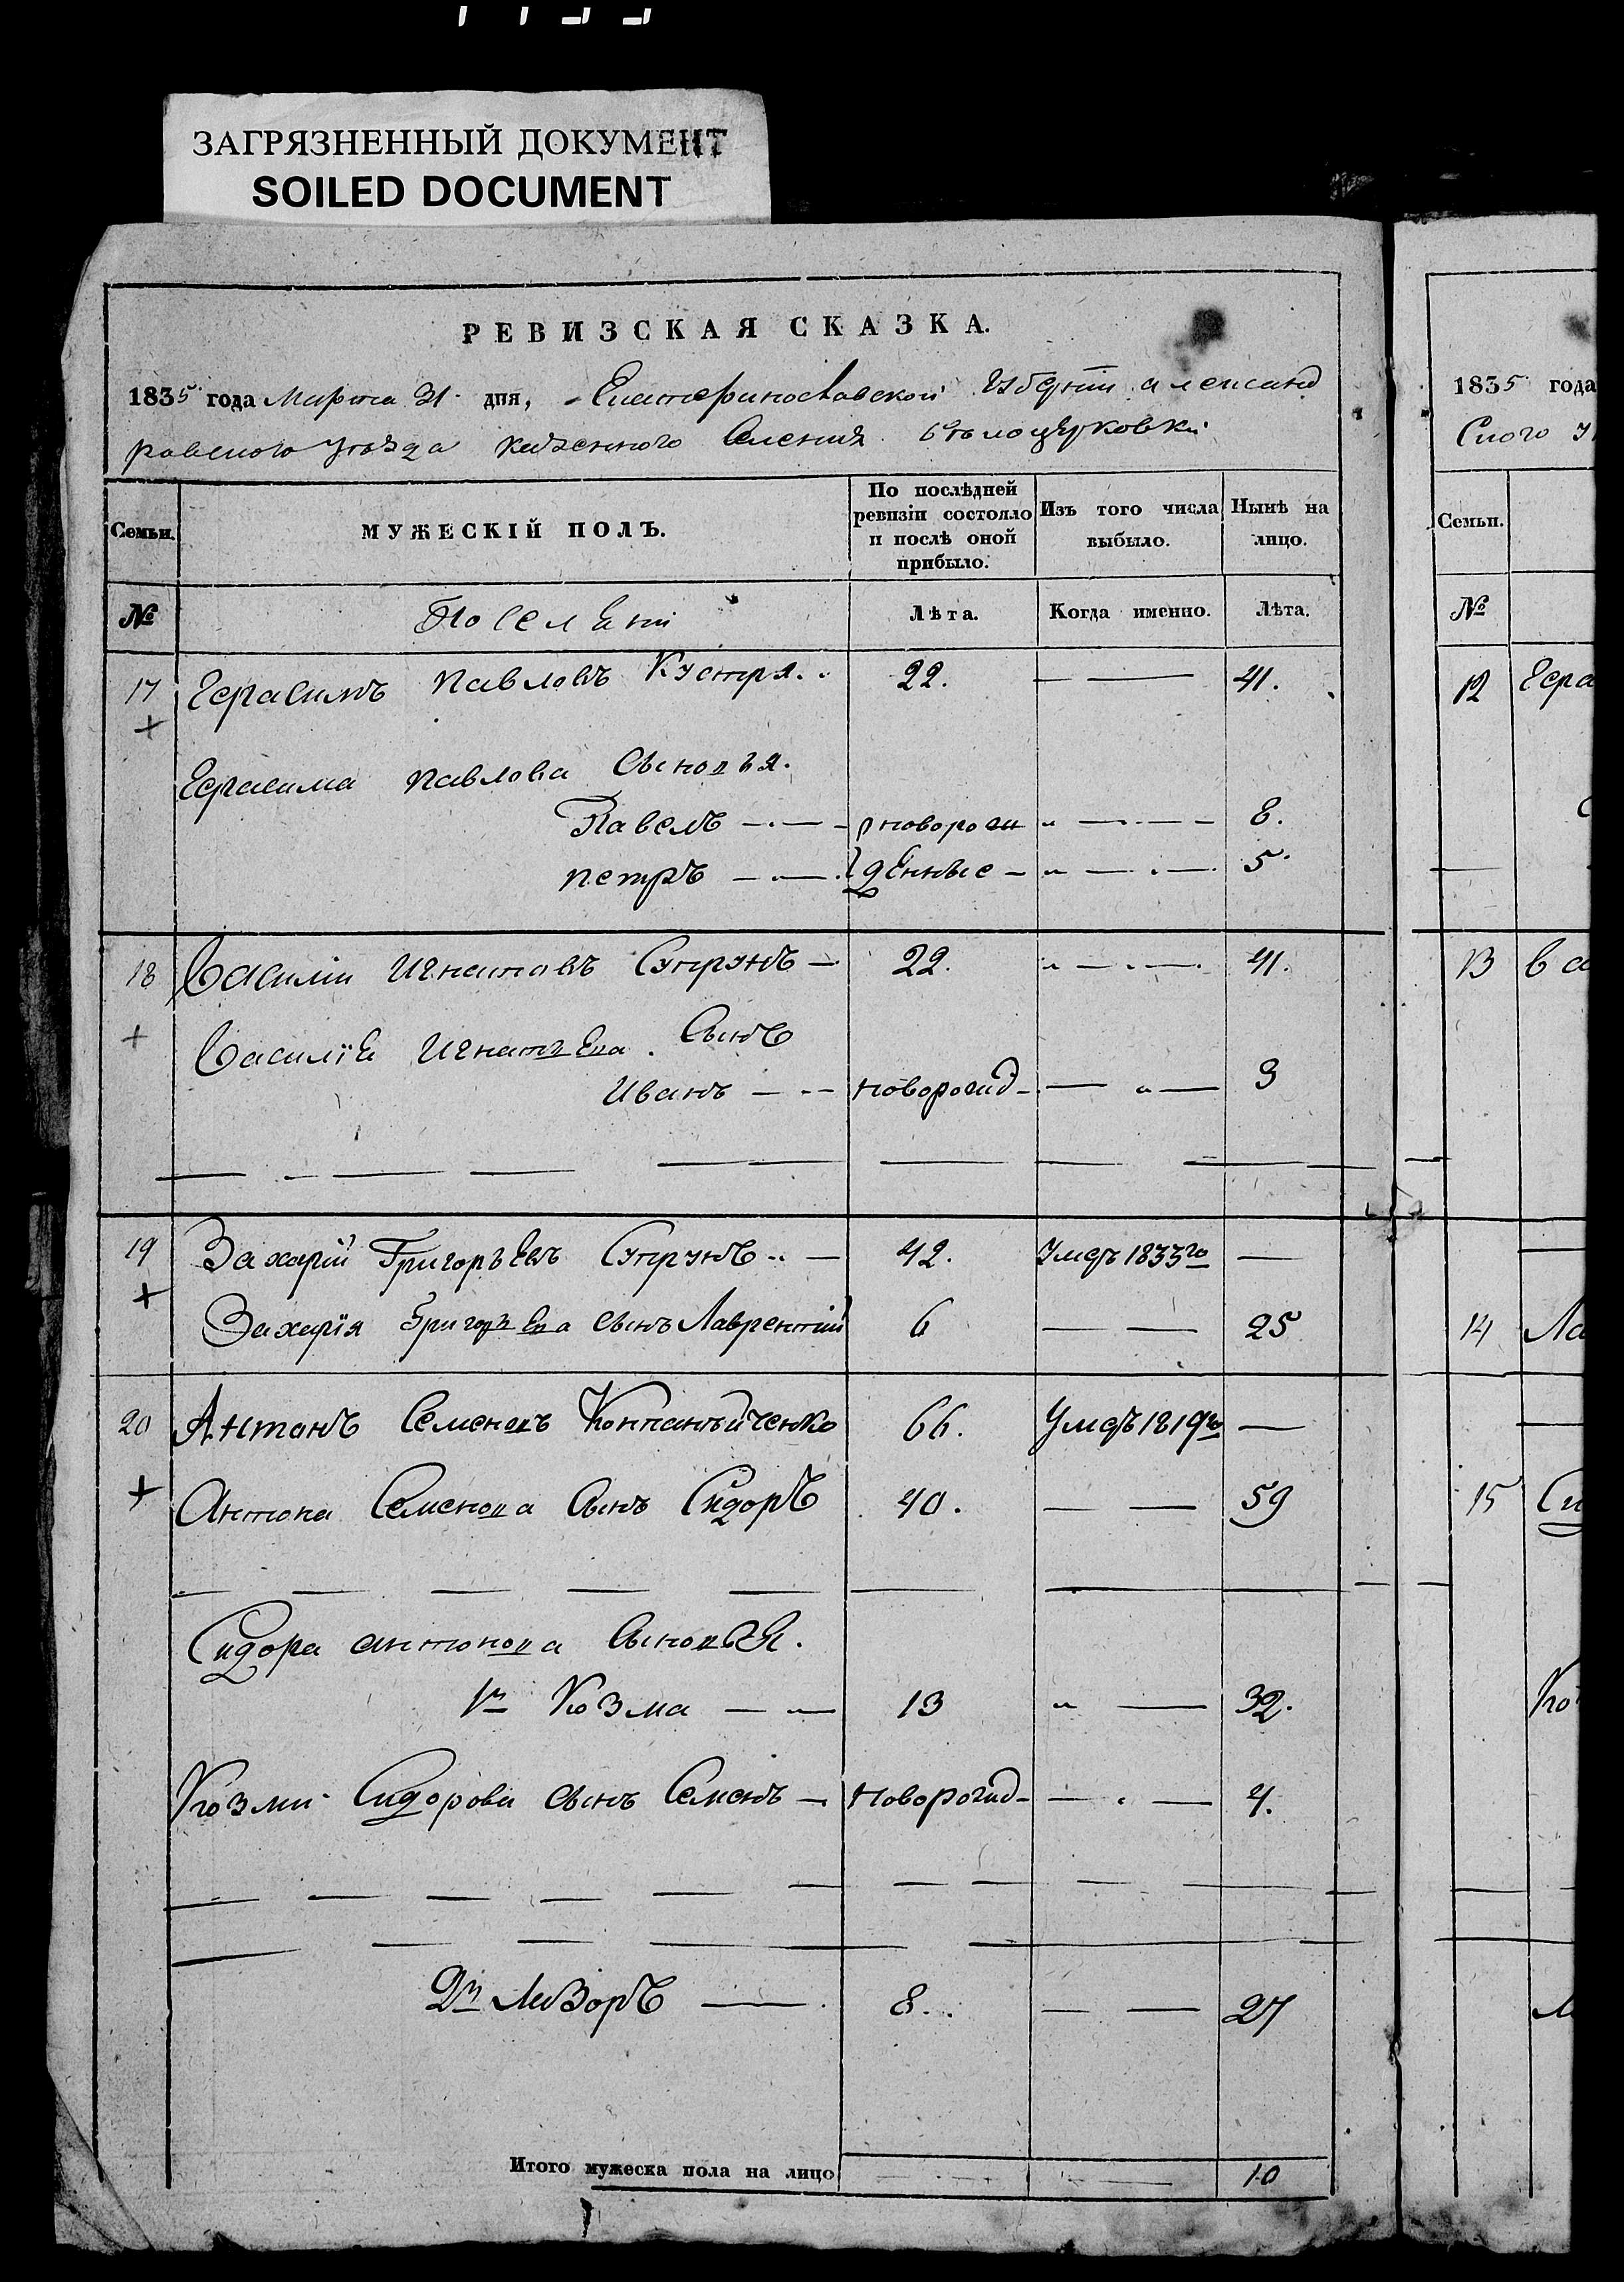 ЗАГРЯЗНЕННЫЙ ДОКУМЕНТ
SOILED DOCUMENT
РЕВИЗСКАЯ СКАЗКА.
1835 года Марта 31 дня, Екатеринославской Губернии Александ
ровского уезда казенного Селения беълоцерковки
Семьи. МУЖЕСКІЙ ПОЛЪ. По послѣдней ревизіи состояло и послѣ оной прибыло. Изъ того числа выбыло. Нынѣ на лицо.
№ Поселяни Лѣта. Когда именно. Лѣта.
17 Герасимъ Павловъ Кустря. 22. — — 41.
+
Герасима Павлова Сыновья.
Павелъ — новорож — 8.
Петръ — денные — 5.
18 Василий Игнатовъ Супрунъ — 22. — 41.
+ Василія Игнатьева Сынъ
Иванъ — новорожд — 3
19 Захарій Григорьевъ Супрунъ — 42. Умеръ 1833го —
+ Захарія Григорьева сынъ Лаврентий 6 — — 25
20 Антонъ СеменовъКонпанъйченко 66. Умеръ 1819го —
+ Антона Семенова Сынъ Сидоръ 40. — — 59
Сидора Антонова Сыновья.
1й Козма — — 13 — 32.
Козми Сидорова сынъ Семенъ — новорожд — 4.
2й Лазоръ — 8. — — 27
Итого мужеска пола на лицо 10
1835 года
Ского у
Семьи.
№
12 Гера
13 Ва
14 Ла
15 Си
Ко